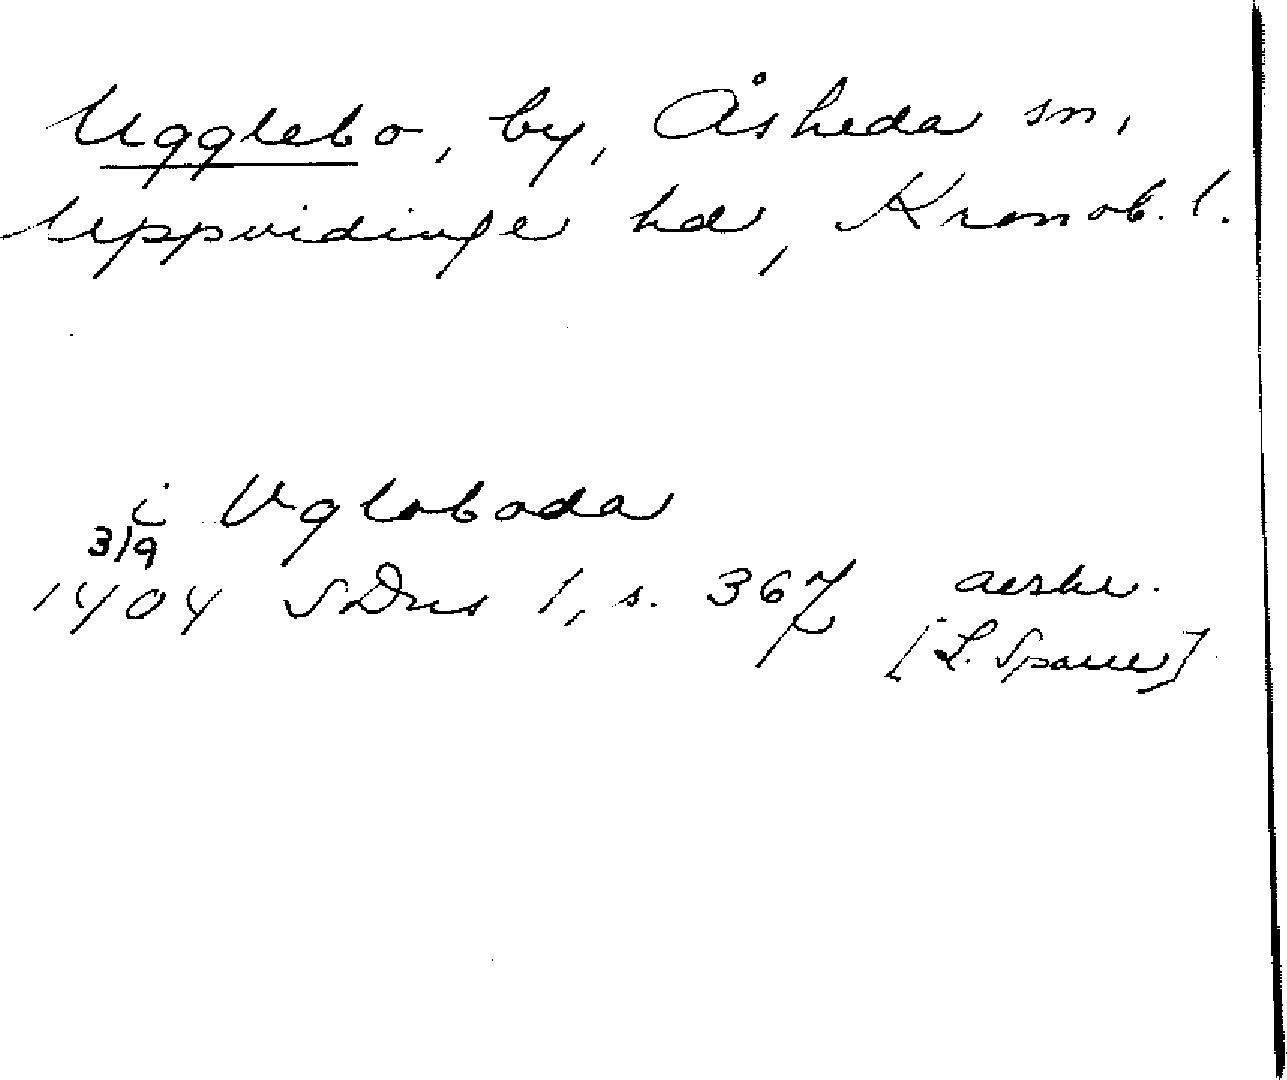 Ugglebo, by, Åsheda sn,
Uppvidinge hd, Kronob. l.
i Vgloboda
3/9
1404 SDns 1, s. 367 avskr.
[L. Sparre]